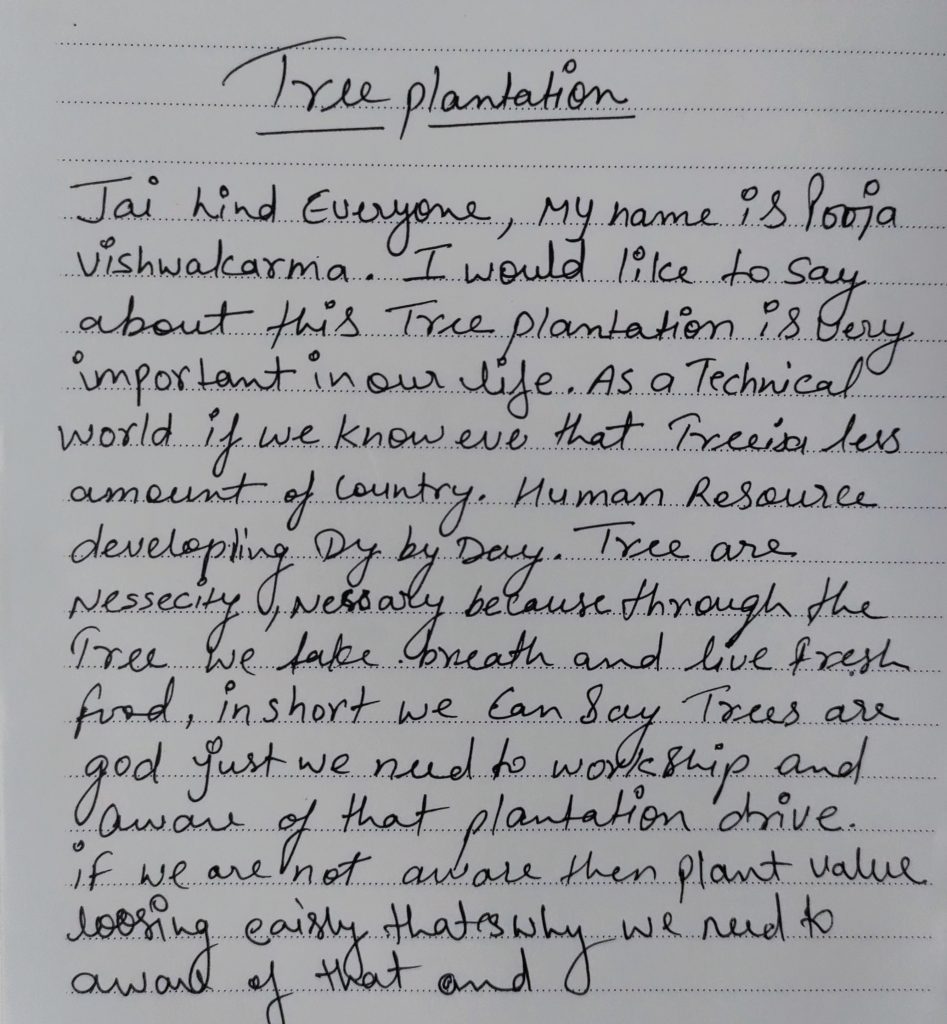 Tree plantation
Jai hind Everyone, My name is Pooja
Vishwakarma. I would like to say
about this Tree plantation is Very
important in our life. As a Technical
world if we know eve that Treeisa less
amount of Country. Human Resource
developling Dy by Day. Tree are
Nessecity, Nessary because through the
Tree We take breath and live fresh
food, in short we Can Say Trees are
god just we need to workship and
aware of that plantation drive.
if we are not aware then plant value
loosing eaisly thatswhy we need to
aware of that and